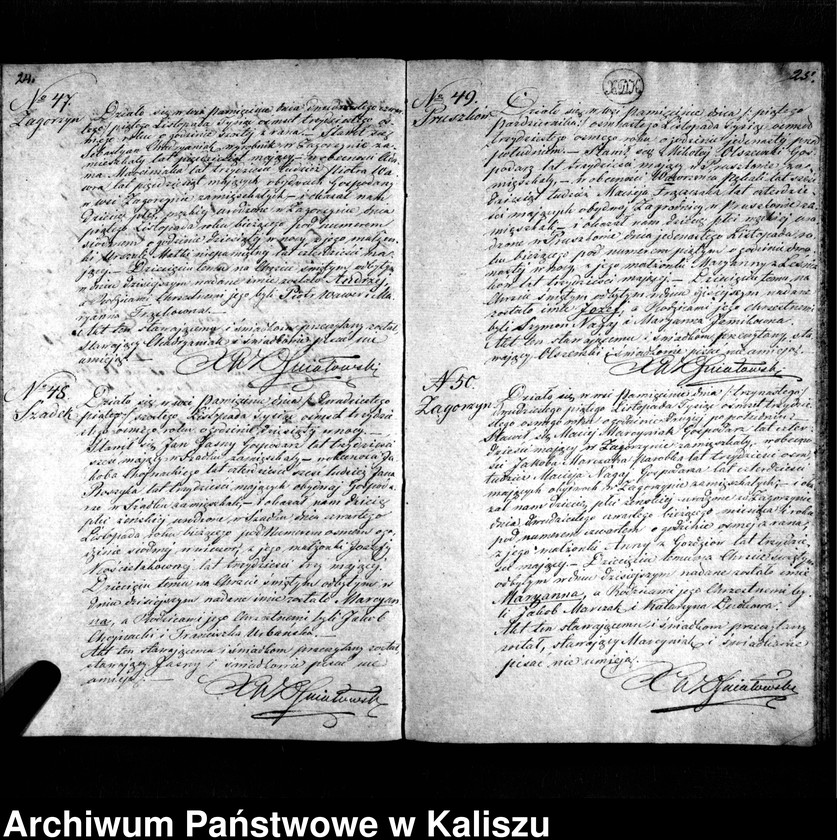 24.
No 47.
Zagorzyn
Działo się w wsi Pamięcinie dnia
piątego Listopada Tysiąc ośmset trzydziestego ós-
mego roku o godzinie z rana. Stawił się
Sebastyan wyrobnik w Zagorzynie za-
mieszkały lat mający w obecności Ada-
ma Marciniaka lat trzydzieści tudzież Piotra Wa-
wra lat pięćdziesiąt mających obydwóch Gospodarzy
w wsi Zagorzynie zamieszkałych i okazał nam
Dziecię płci męzkiej urodzone w Zagorzynie dnia
piątego Listopada roku bieżącego pod numerem
siódmym o godzinie dziesiątej w nocy z jego małżon-
ki Urszuli Matki niepamiętny lat czterdzieści ma-
jącej. Dziecięciu temu na Chrzcie świętym odbytym
w dniu dzisiejszym nadane imie zostało Andrzej,
a Rodzicami chrzestnemi jego byli Piotr Wawer i Ma-
ryanna
Akt ten stawającemu i świadkom przeczytany został,
stawający i świadkowie pisać nie
umieją.
X W K Gniatowski
No 48.
Szadek
Działo się w wsi Pamięcinie dnia
piątego Listopada Tysiąc ośmset trzydzie-
stego ósmego roku o godzinie dziesiątej w nocy
Stawił się Jan Jasny Gospodarz lat trzydzieści
sześć mający w Szadku zamieszkały w obecności Ja-
koba Chojnackiego lat czterdzieści sześć tudzież Jana
lat trzydzieści mających obydwaj Gospoda-
rze w Szadku zamieszkali i okazał nam dziecię
płci żeńskiej urodzone w Szadku dnia czwartego
Listopada roku bieżącego pod Numerem ósmym o go-
dzinie siódmej w wieczór z jego małżonki Józefy
lat trzydzieści trzy mającej.
Dziecięciu temu na Chrzcie świętym odbytym w
dniu dzisiejszym nadane imie zostało Maryan-
na, a Rodzicami jego Chrzestnemi byli Jakub
Chojnacki i Franciszka Urbańska.
Akt ten stawającemu i świadkom przeczytany został
stawający Jasny i świadkowie pisać nie
umieją.
X W K Gniatowski
25.
No 49.
Pruszków
Działo się w wsi Pamięcinie dnia piątego
Października / osmnastego Listopada Tysiąc ośmset
trzydziestego ósmego roku o godzinie jedenastej przed
południem. Stawił się Mikołaj Olszewski Gos-
podarz lat trzydzieści mający w Pruszkowie za-
mieszkały w obecności Wawrzyna lat sześć-
dziesiąt tudzież Macieja lat czterdzie-
ści mających obydwaj Zagrodnicy w Pruszkowie za-
mieszkali i okazał nam dziecię płci męzkiej uro-
dzone w Pruszkowie dnia jedenastego Listopada ro-
ku bieżącego pod numerem piątym o godzinie dwu-
nastej w nocy z jego małżonki Maryanny
lat trzydzieści mającej Dziecięciu temu na
Chrzcie świętym odbytym w dniu dzisiejszym nadane
zostało imie Józef, a Rodzicami jego chrzestnemi
byli Szymon Nagy i Maryanna
Akt ten stawającemu i świadkom przeczytany, sta-
wający Olszewski i świadkowie pisać nie umieją.
X W K Gniatowski
N 50.
Zagorzyn
Działo się w wsi Pamięcinie dnia / trzynastego,
dwudziestego piątego Listopada Tysiąc ośmset trzydzie-
stego ósmego roku o godzinie drugiej po południu.
Stawił się Maciej Marcyniak Gospodarz lat czter-
dzieści mający w Zagorzynie zamieszkały, w obecno-
ści Jakoba Marszaka Parobka lat trzydzieści ośm,
tudzież Macieja Nagy Gospodarza lat czterdzieści
mających obydwóch w Zagorzynie zamieszkałych i oka-
zał nam dziecię płci żeńskiej urodzone w Zagorzynie
dnia dwudziestego czwartego bieżącego miesiąca i roku
pod numerem czwartym o godzinie ósmej z rana,
z jego małżonki Anny z Goździów lat trzydzie-
ści mającej. Dziecięciu temu na Chrzcie świętym
odbytym w dniu dzisiejszym nadane zostało imie
Maryanna, a Rodzicami jego Chrzestnemi by-
li Jakob Marszak i Katarzyna
Akt ten stawającemu i świadkom przeczytany
został, stawający Marcyniak i świadkowie
pisać nie umieją.
X W K Gniatowski
Archiwum Państwowe w Kaliszu